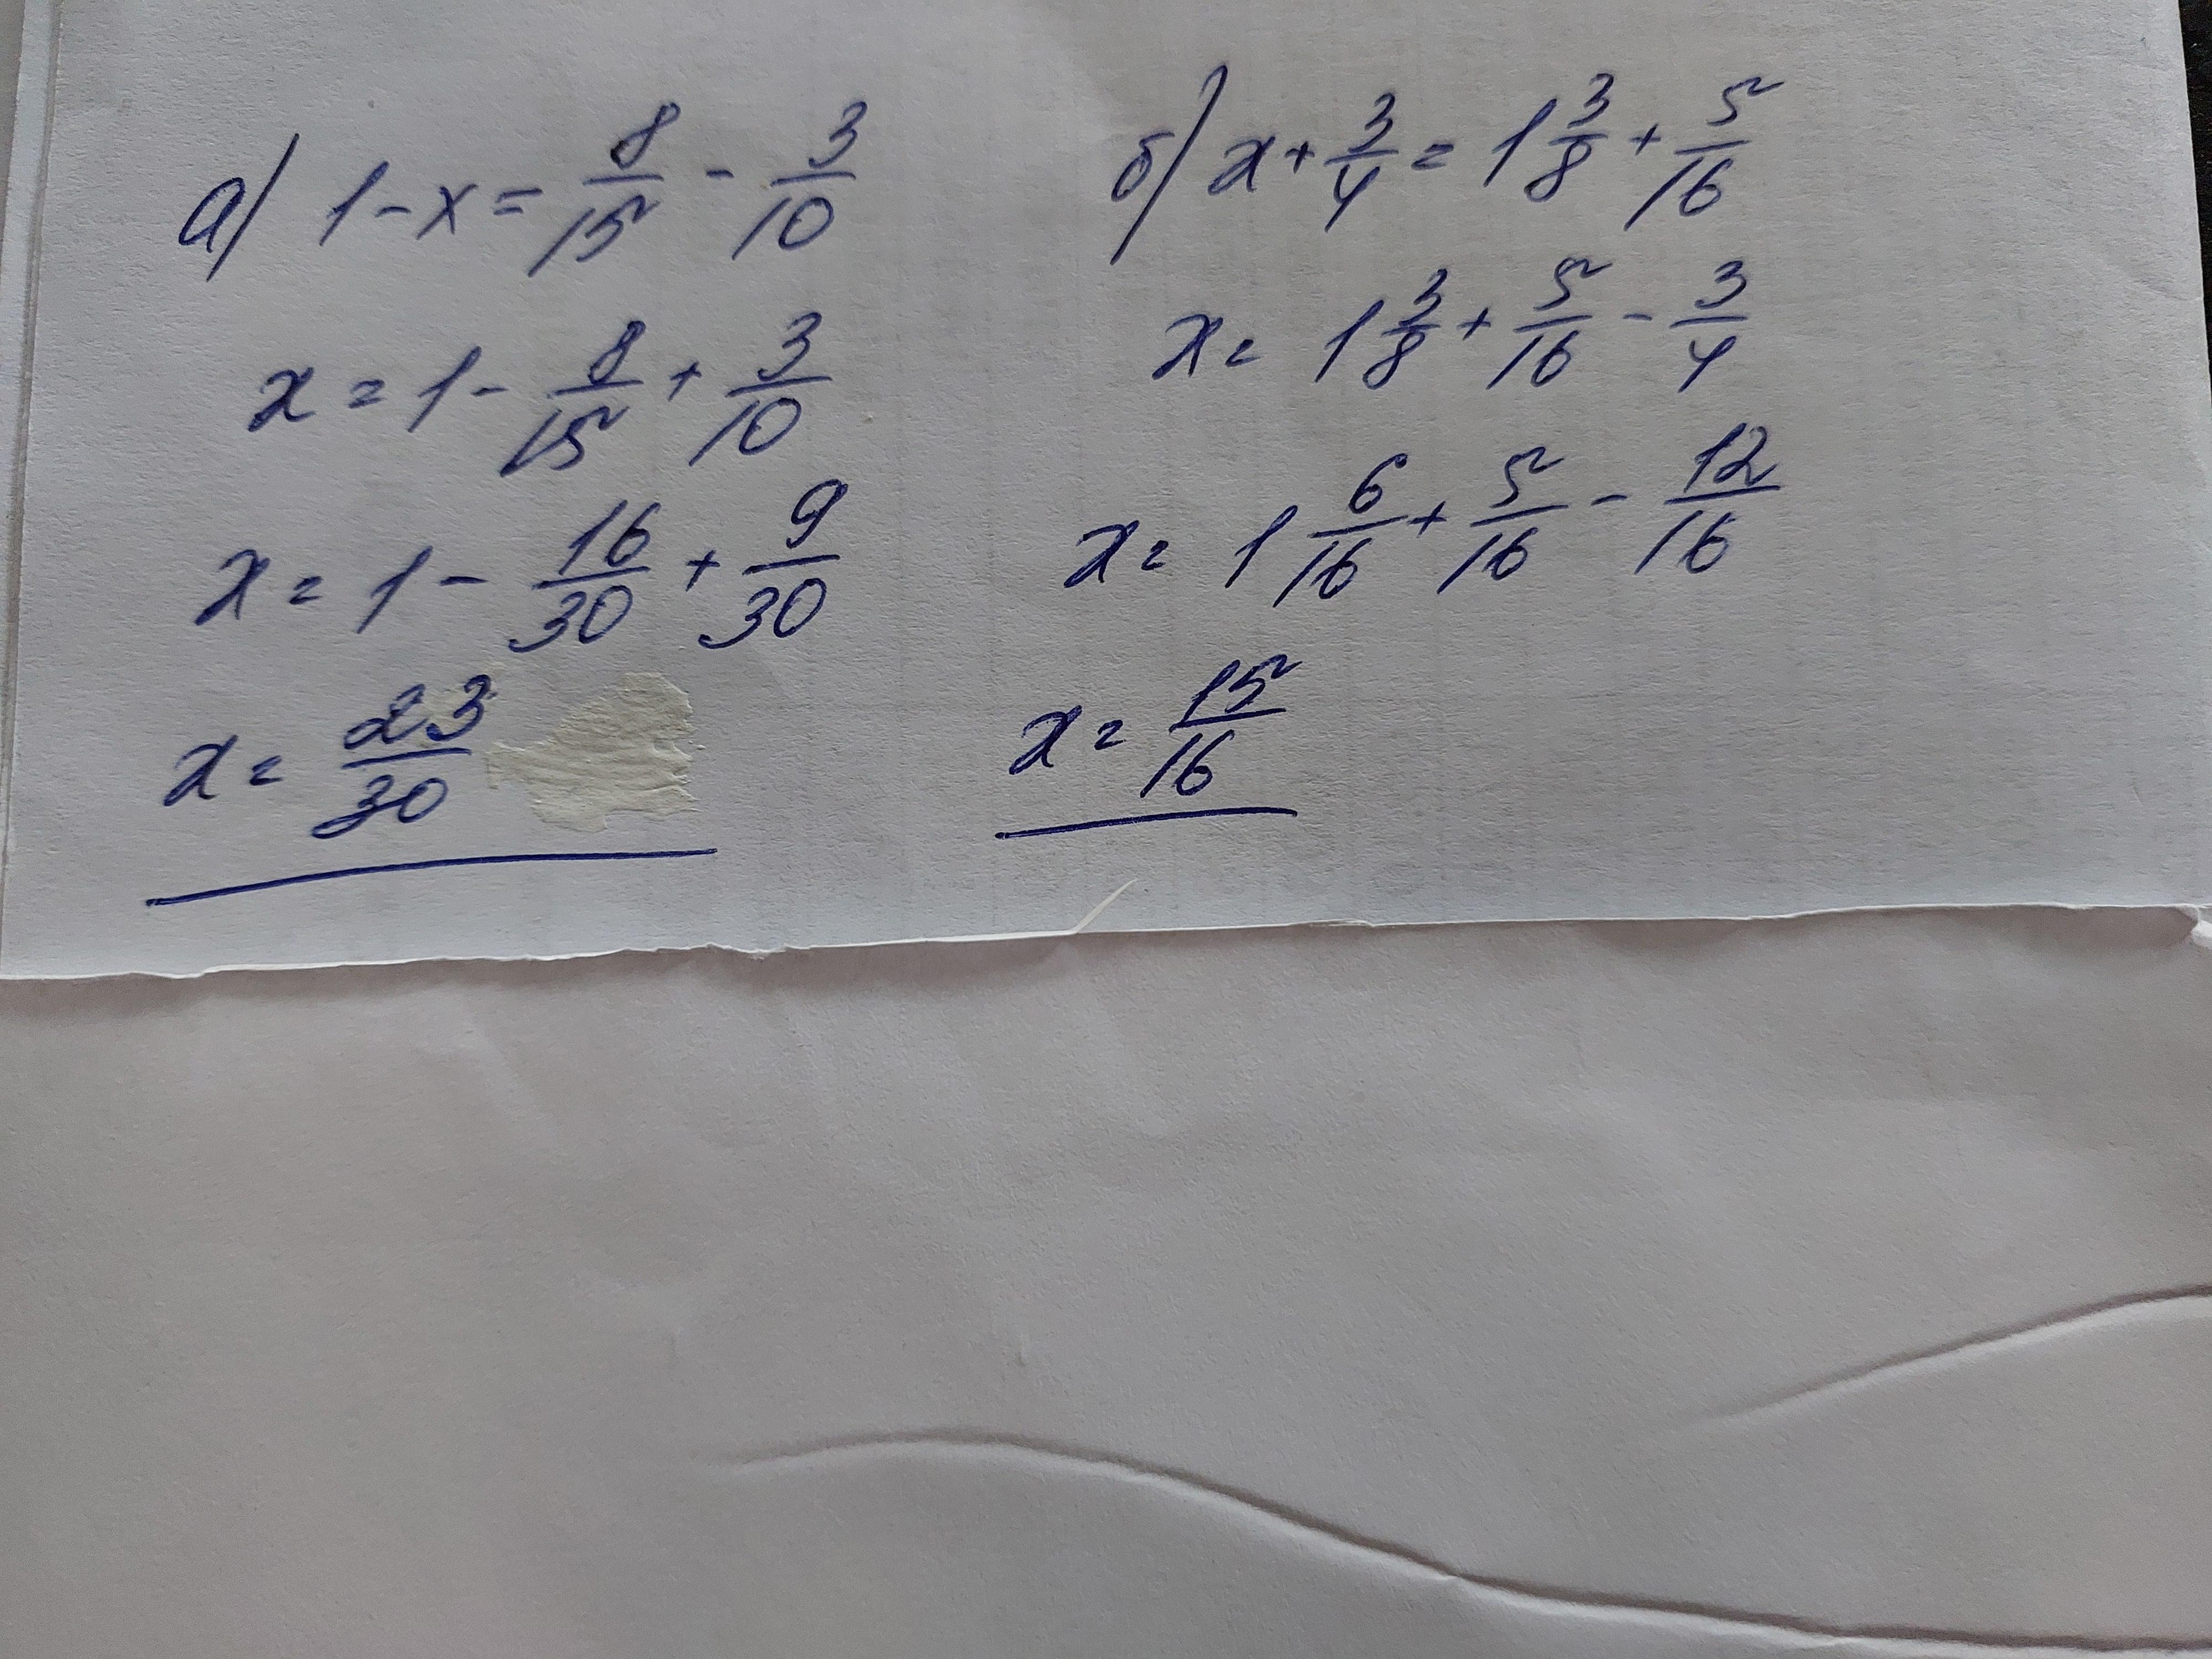 а) 1 - x = 8/15 - 3/10
x = 1 - 8/15 + 3/10
x = 1 - 16/30 + 9/30
x = 23/30
б) x + 3/4 = 1 3/8 + 5/16
x = 1 3/8 + 5/16 - 3/4
x = 1 6/16 + 5/16 - 12/16
x = 15/16